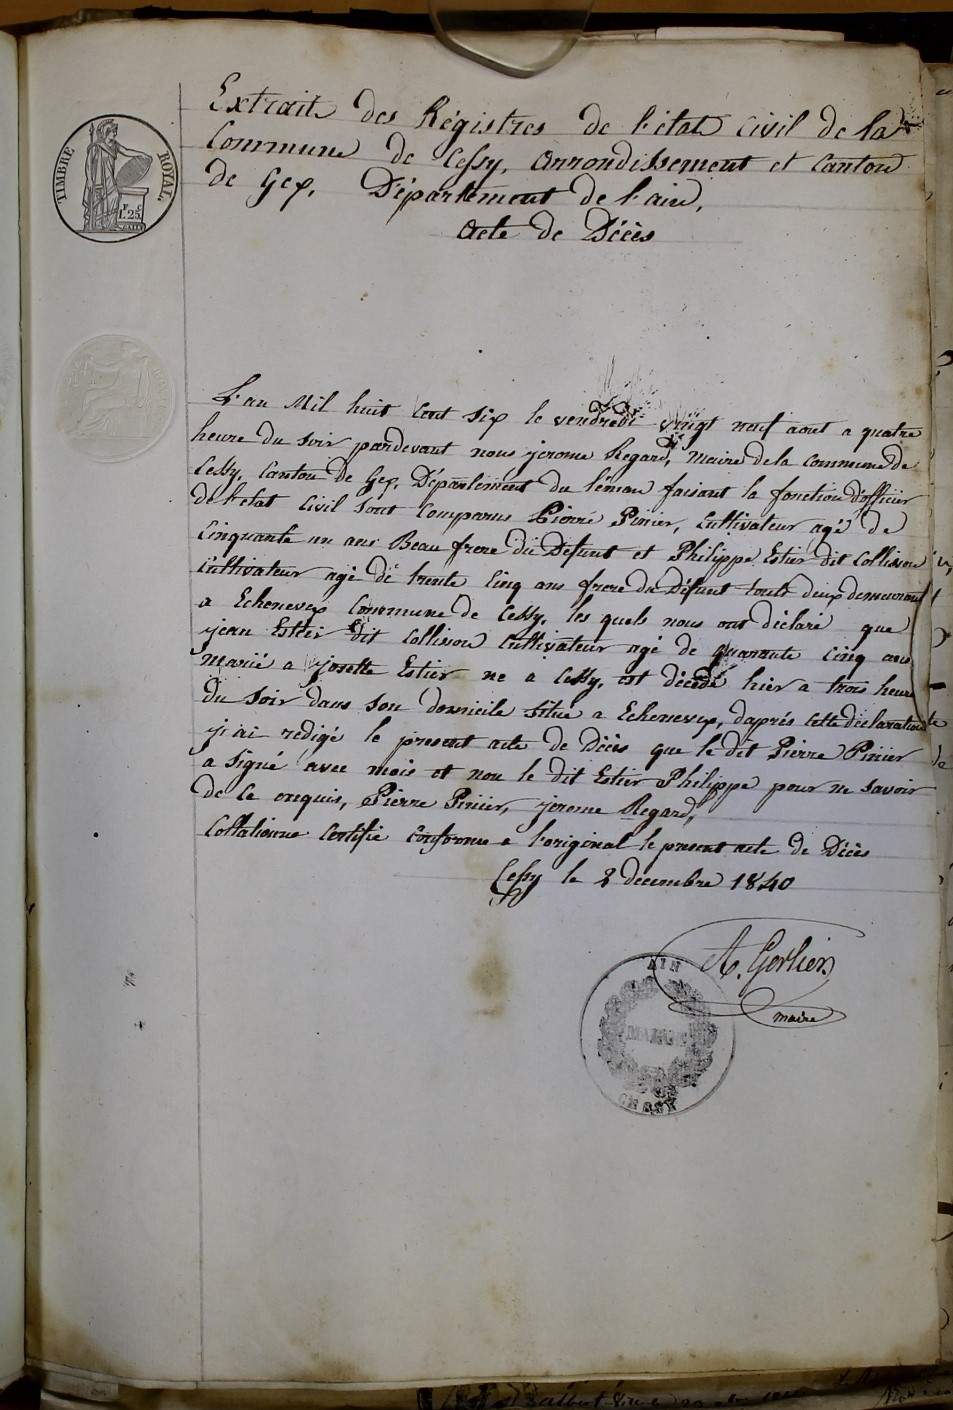 Extrait des Régistres de l'état civil de la
Commune de Cessy, arrondissement et Canton
de Gex, Département de l'ain,
Acte de Décès
TIMBRE ROYAL
1F. 25C
L'an Mil huit Cent six le vendredi vingt neuf aout a quatre
heure du soir pardevant nous jerome Regard, Maire de la commune de
Cessy, Canton de Gex, Département du léman faisant la fonction d'officier
de l'état Civil sont Comparus Pierre Pinier, Cultivateur agé de
Cinquante un ans Beau frere du Défunt et Philippe Estier dit Collisson
Cultivateur agé de trente Cinq ans frere du Défunt touts deux demeurant
a Echenevex Commune de Cessy, les quels nous ont déclaré que
jean Estier dit Collisson Cultivateur agé de quarante cinq ans
marié a josette Estier ne a Cessy, est décédé hier a trois heure
du soir dans son domicile situé a Echenevex, daprés cette declaration
j'ai redigé le present acte de Décès que le dit Pierre Pinier
a Signé avec mois et non le dit Estier Philippe pour ne savoir
de ce requis, Pierre Pinier, jerome Regard,
Collationné Certifié Conforme a l'original le present acte de Décès
Cessy le 2 decembre 1840
A. Gerlier
maire
AIN
MAIRIE
CESSY